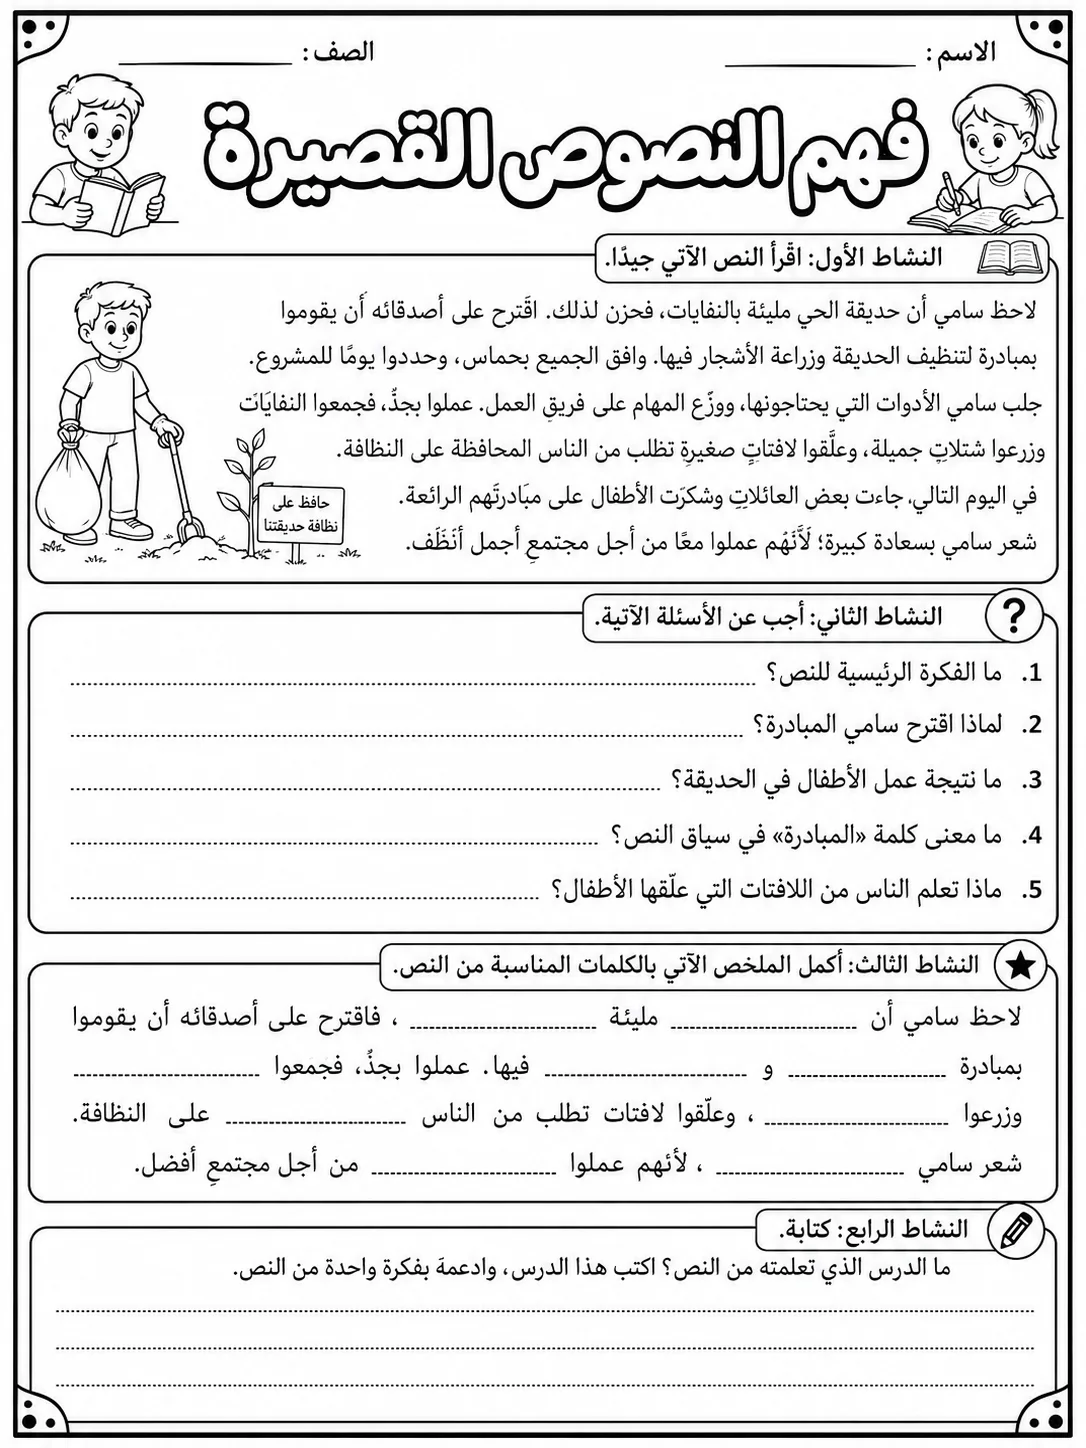 الاسم: ____________ الصف: ____________
فهم النصوص القصيرة
النشاط الأول: اقْرأ النص الآتي جيدًا.
لاحظ سامي أن حديقة الحي مليئة بالنفايات، فحزن لذلك. اقَترح على أصدقائه أَن يقوموا
بمبادرة لتنظيف الحديقة وزراعة الأشجار فيها. وافق الجميع بحماس، وحددوا يومًا للمشروع.
جلب سامي الأدوات التي يحتاجونها، ووزّع المهام على فريقِ العمل. عملوا بجدٍّ، فجمعوا النفايَات
وزرعوا شتلاتٍ جميلة، وعلَّقوا لافتاتٍ صغيرةِ تطلب من الناس المحافظة على النظافة.
في اليوم التالي، جاءت بعض العائلاتِ وشكرَت الأطفال على مبَادرتَهم الرائعة.
شعر سامي بسعادة كبيرة؛ لَأَنَهُم عملوا معًا من أجل مجتمعِ أجمل أَنَظَف.
حافظ على
نظافة حديقتنا
النشاط الثاني: أجب عن الأسئلة الآتية.
1. ما الفكرة الرئيسية للنص؟
2. لماذا اقترح سامي المبادرة؟
3. ما نتيجة عمل الأطفال في الحديقة؟
4. ما معنى كلمة «المبادرة» في سياق النص؟
5. ماذا تعلم الناس من اللافتات التي علّقها الأطفال؟
النشاط الثالث: أكمل الملخص الآتي بالكلمات المناسبة من النص.
لاحظ سامي أن ____________ مليئة ____________ ، فاقترح على أصدقائه أن يقوموا
بمبادرة ____________ و ____________ فيها. عملوا بجدٍّ، فجمعوا ____________
وزرعوا ____________ ، وعلّقوا لافتات تطلب من الناس ____________ على النظافة.
شعر سامي ____________ ، لأنهم عملوا ____________ من أجل مجتمعِ أفضل.
النشاط الرابع: كتابة.
ما الدرس الذي تعلمته من النص؟ اكتب هذا الدرس، وادعمهَ بفكرة واحدة من النص.